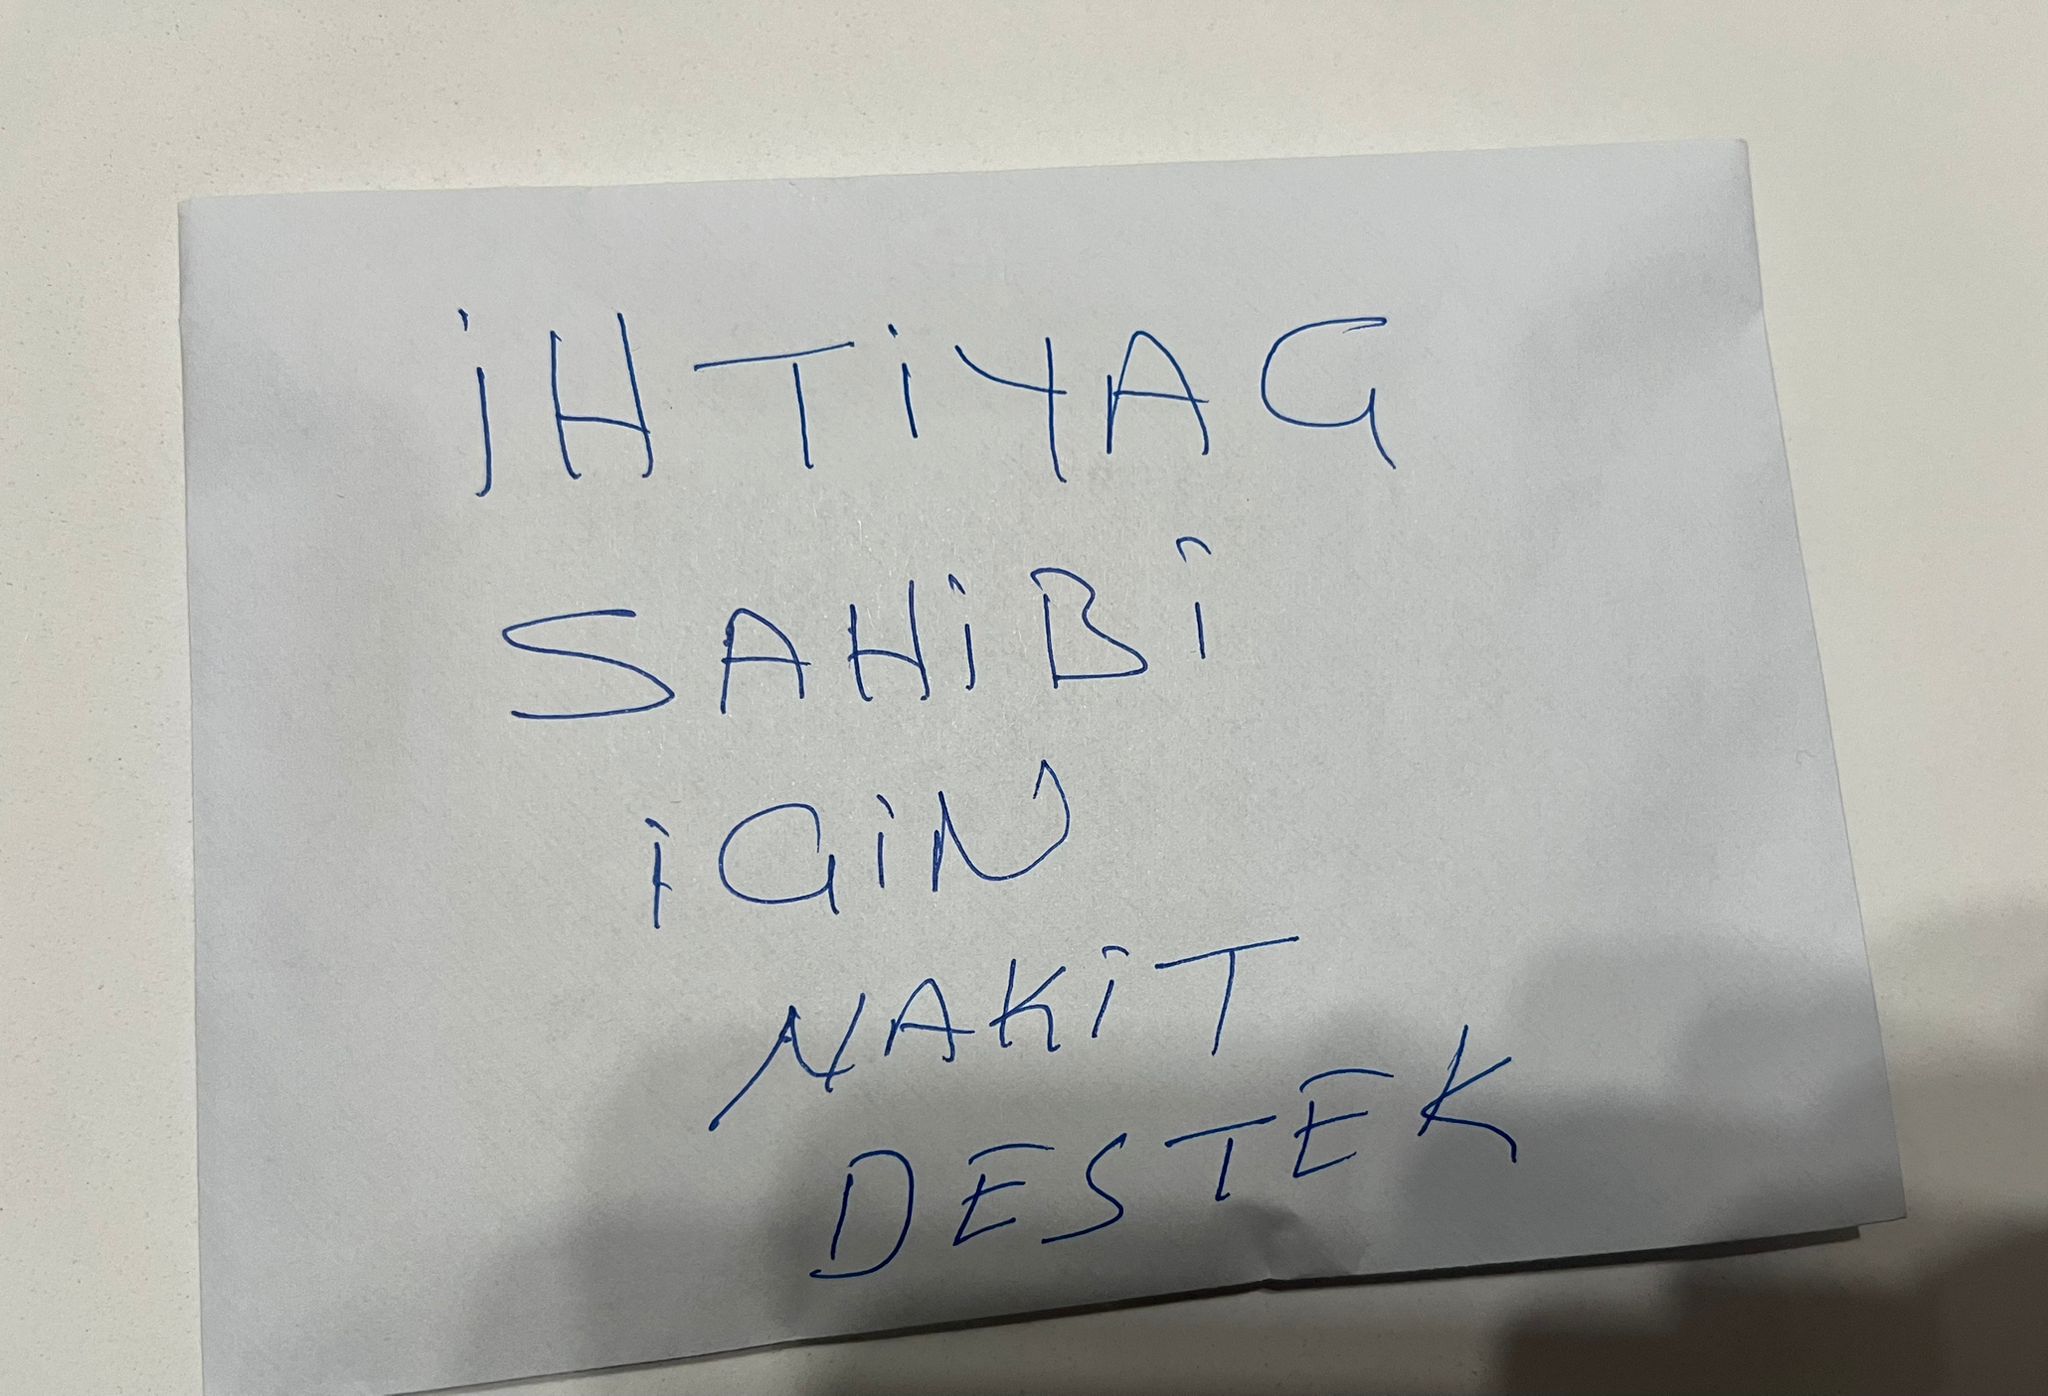 İHTİYAÇ
SAHİBİ
İÇİN
NAKİT
DESTEK